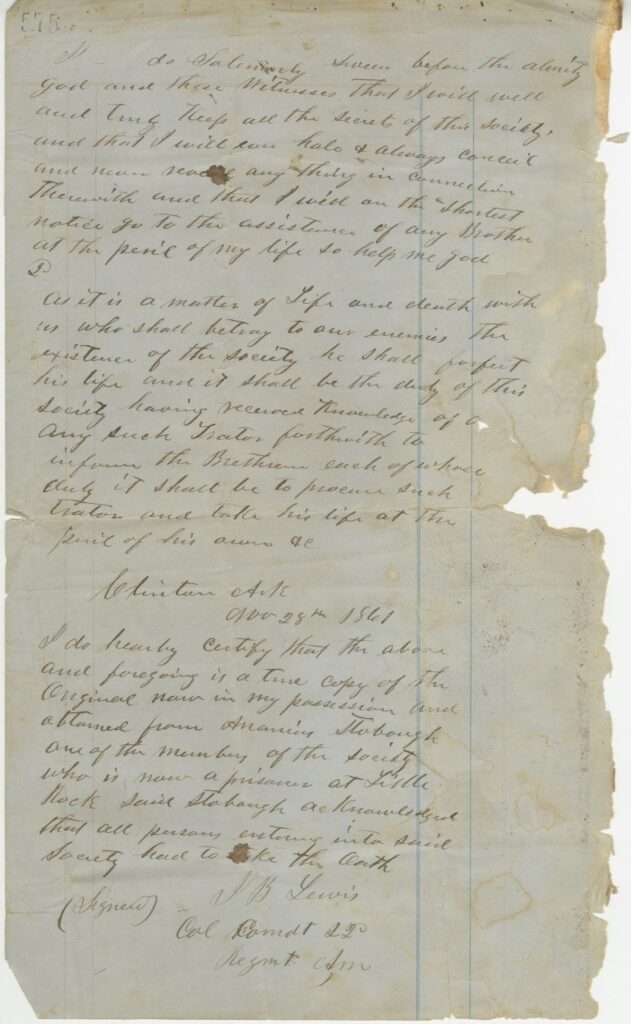 575
I — do Solemnly Swear before the almity
god and these Witnesses that I will well
and truly Keep all the secrets of this society,
and that I will ever hale & always conceil
and never reveal any thing in connection
therewith and that I will on the Shortest
notice go to the assistance of any Brother
at the peril of my life so help me god
2
As it is a matter of Life and death with
us who shall betray to our enemies the
existence of the society he shall forfeit
his life and it shall be the duty of this
Society having received Knowledge of a
any such Trator forthwith to
inform the Brethren each of whose
duty it shall be to procure such
trator and take his life at the
peril of his own &c
Clinton Ark
Nov 28th 1861
I do hearby certify that the above
and foregoing is a true copy of the
Original now in my possession and
obtained from Ananias Stobaugh
one of the members of the society
who is now a prisoner at Little
Rock Said Stobaugh acknowledged
that all persons entering into said
Society had to take the Oath
(Signed) J B Lewis
Col Comdt
Regmt